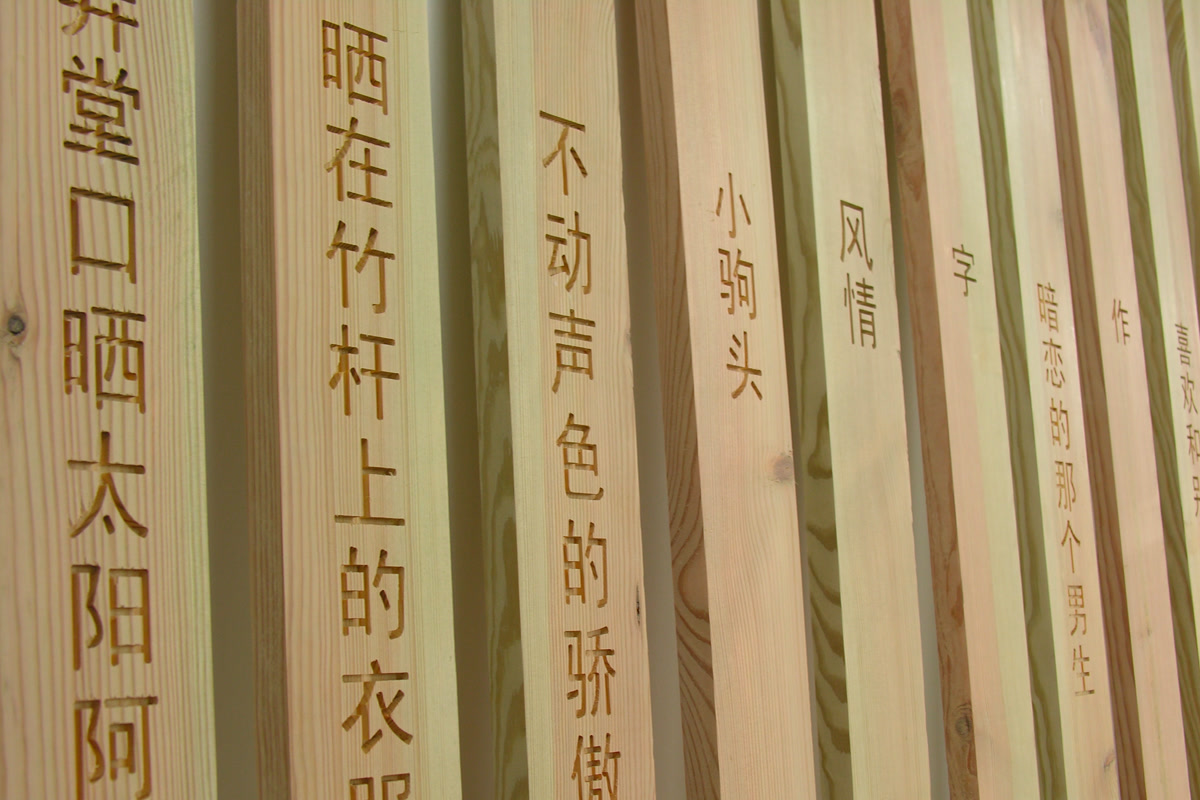 堂口晒太阳阿
晒在竹杆上的衣服
不动声色的骄傲
小驹头
风情
字
暗恋的那个男生
作
喜欢和别